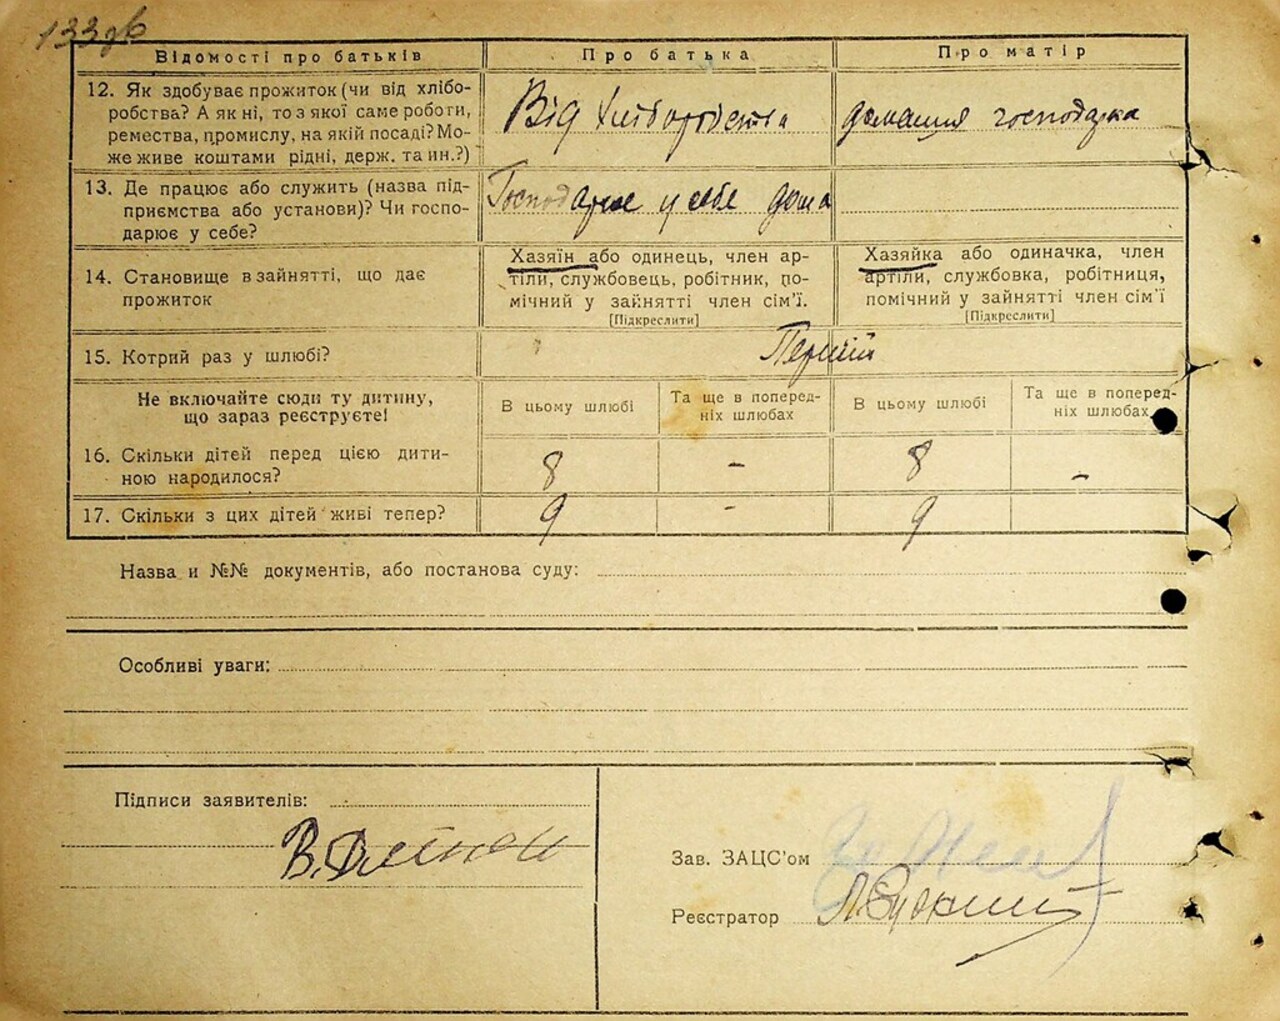 133зв
Відомості про батьків Про батька Про матір
12. Як здобуває прожиток (чи від хлібо-
робства? А як ні, то з якої саме роботи,
ремества, промислу, на якій посаді? Мо-
же живе коштами рідні, держ. та ин.?)
Від хліборобства домашня господарка
13. Де працює або служить (назва під-
приємства або установи)? Чи госпо-
дарює у себе?
Господарює у себе дома
14. Становище в зайнятті, що дає
прожиток
Хазяїн або одинець, член ар-
тіли, службовець, робітник, по-
мічний у зайнятті член сім’ї.
[Підкреслити]
Хазяйка або одиначка, член
артіли, службовка, робітниця,
помічний у зайнятті член сім’ї
[Підкреслити]
15. Котрий раз у шлюбі? Перший
Не включайте сюди ту дитину,
що зараз реєструєте!
В цьому шлюбі
Та ще в поперед-
ніх шлюбах
В цьому шлюбі
Та ще в поперед-
ніх шлюбах
16. Скільки дітей перед цією дити-
ною народилося?
8 - 8 -
17. Скільки з цих дітей живі тепер? 9 - 9
Назва и №№ документів, або постанова суду:
Особливі уваги:
Підписи заявителів:
В.
Зав. ЗАЦС’ом
Реєстратор